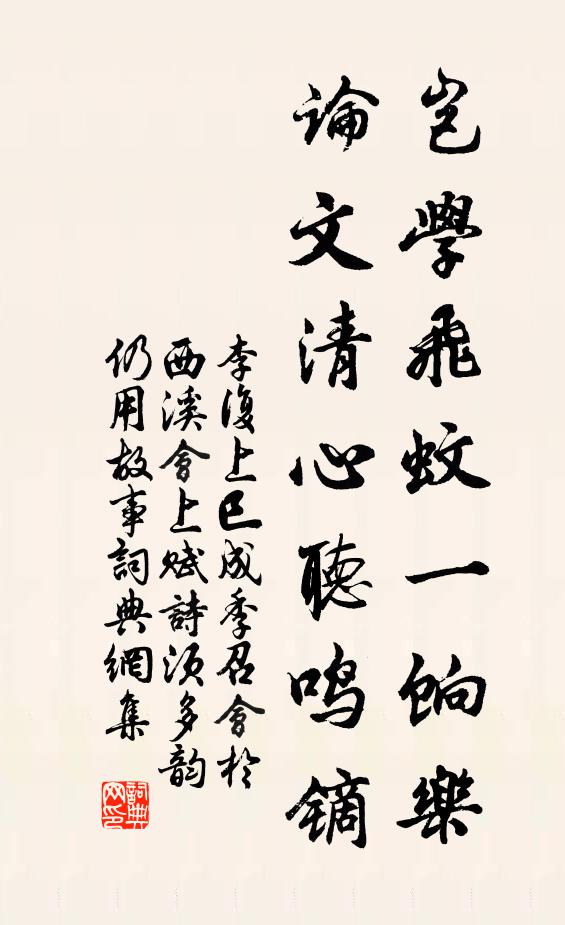 豈學飛蚊一餉樂
論文清心聽鳴鏑
李復上巳成季召會於
西溪會上賦詩須多韵
仍用故事詞典網集
詞典网印